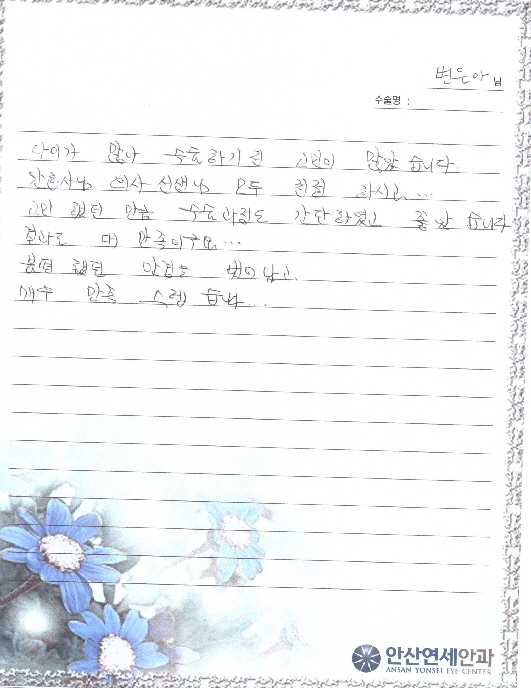 변은아 님
수술명 :
나이가 많아 수술하기 전 고민이 많았습니다.
간호사님 의사 선생님 모두 친절 하시고...
고민 했던 만큼 수술과정도 간단하였고 좋았습니다
결과도 대 만족이구요...
불편했던 안경도 벗어 났고.
매우 만족 스럽습니다...
안산연세안과
ANSAN YONSEI EYE CENTER